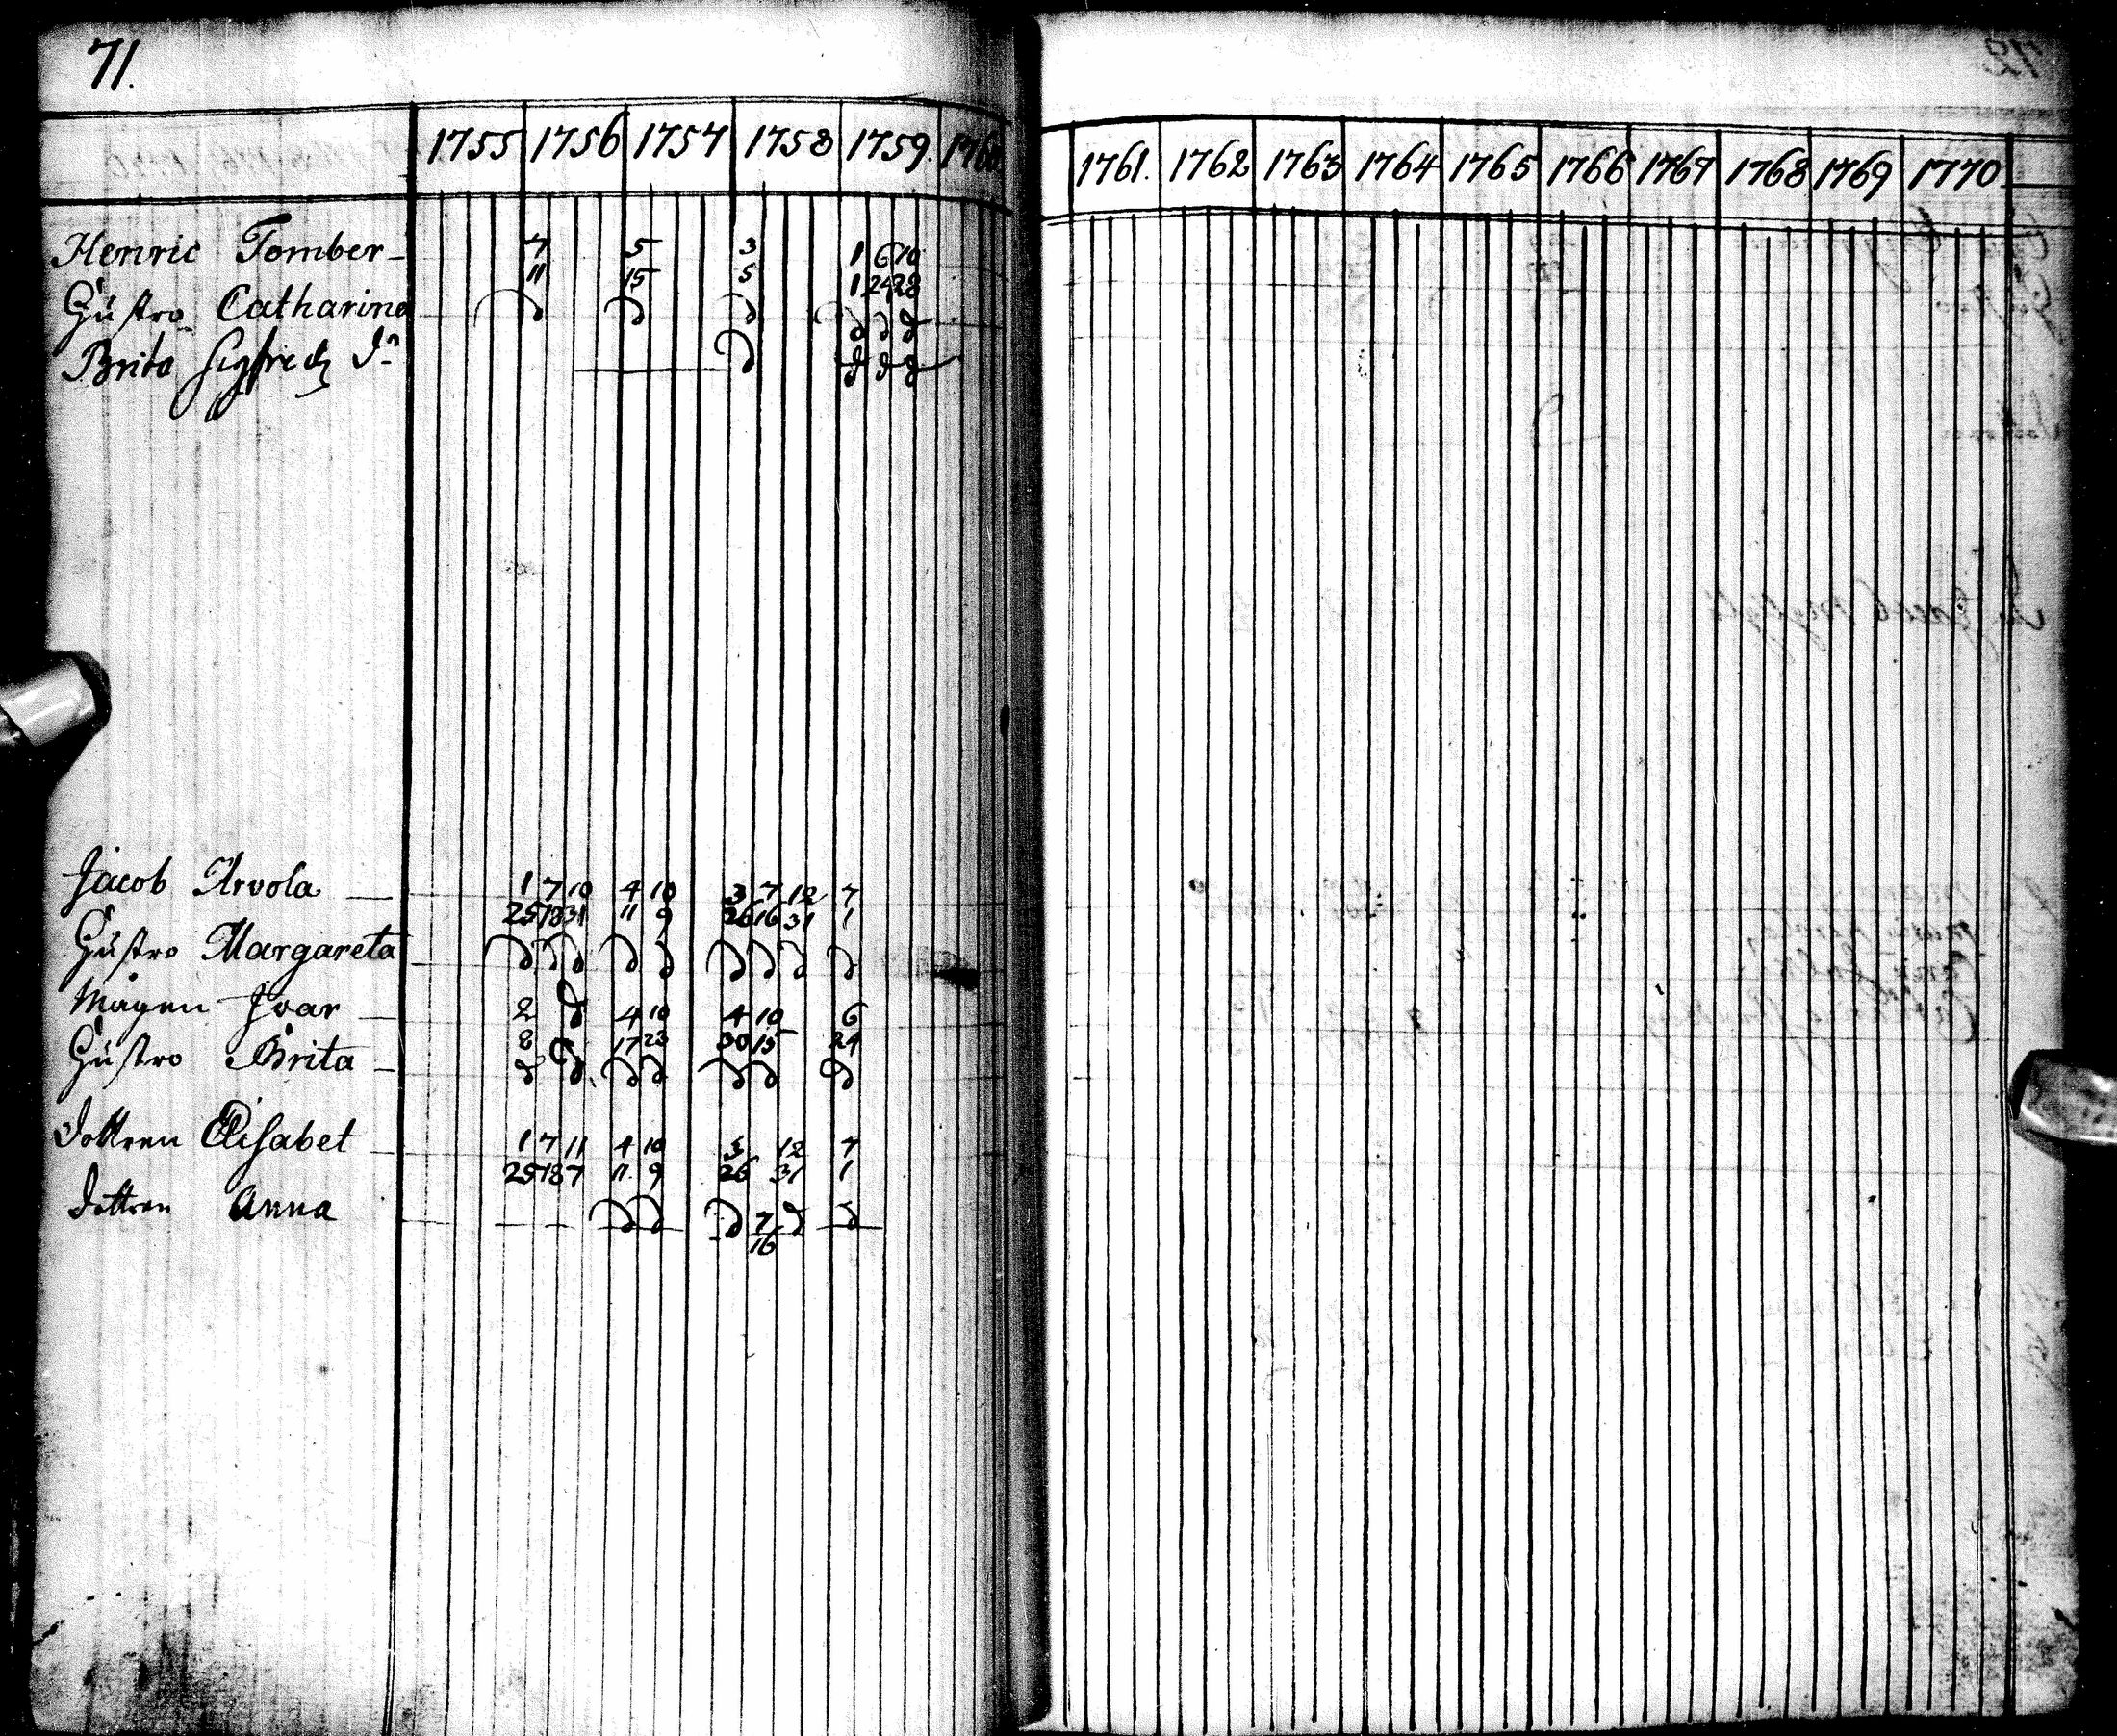 71.
1755 1756 1757 1758 1759. 1760.
1761. 1762 1763 1764 1765 1766 1767 1768 1769 1770
Henric Tomber 7 5 3 1 6 10
11 15 5 1 24 28
Hustro Catharina d d d d d d
Brita Sigfredz do d d d d
Jacob Arvola 1 7 10 4 10 3 7 12 7
25 18 31 11 9 26 16 31 1
Hustro Margareta d d d d d d d d d
Mågen Ivar 2 d 4 10 4 10 6
8 17 23 30 15 24
Hustro Brita d d d d d d d
dottren Elisabet 1 7 11 4 10 3 12 7
25 18 7 11 9 26 31 1
dottren Anna d d d 7 d d
16
72